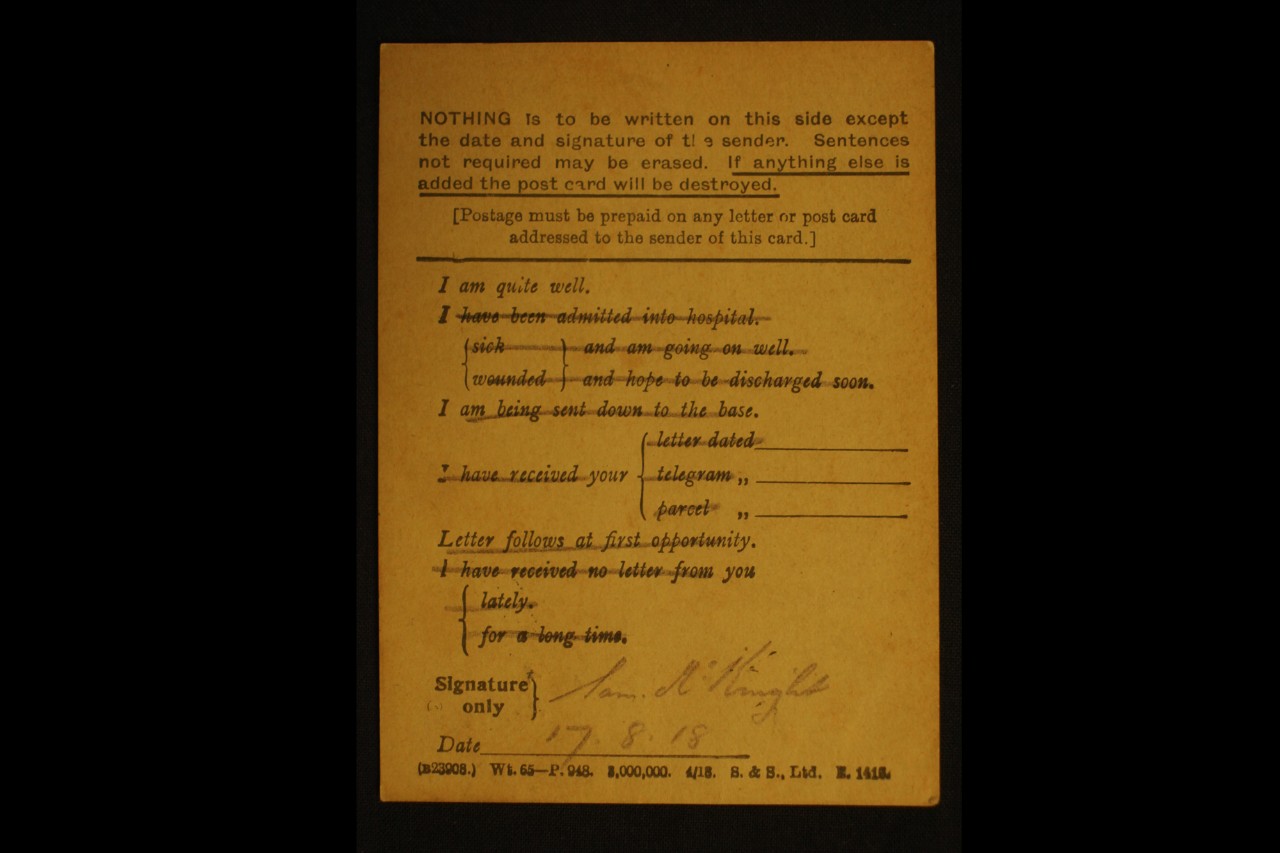 NOTHING is to be written on this side except
the date and signature of the sender. Sentences
not required may be erased. If anything else is
added the post card will be destroyed.
[Postage must be prepaid on any letter or post card
addressed to the sender of this card.]
I am quite well.
I have been admitted into hospital.
sick and am going on well.
wounded and hope to be discharged soon.
I am being sent down to the base.
letter dated
I have received your telegram „
parcel „
Letter follows at first opportunity.
I have received no letter from you
lately.
for a long time.
Signature
only
Sam. McKnight
Date 17.8.18
(B23908.) Wt. 65—P. 948. 3,000,000. 4/18. S. & S., Ltd. E. 1418.